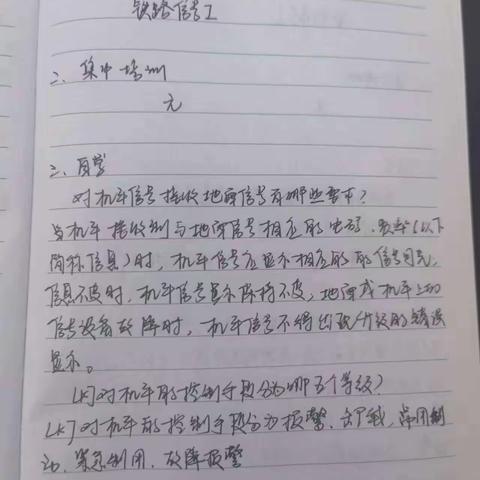 铁路信号工
二、集中培训
无
三、自学
对机车信号接收地面信号有哪些要求?
当机车接收到与地面信号相应的电码、数字(以下
简称信息)时,机车信号应显示相应的的信号灯光,
信息不变时,机车信号显示保持不变,地面或机车上的
信号设备故障时,机车信号不得出现升级的错误
显示。
LKJ对机车的控制手段分为哪五个等级?
LKJ对机车的控制手段分为报警、卸载、常用制
动、紧急制闸、故障报警